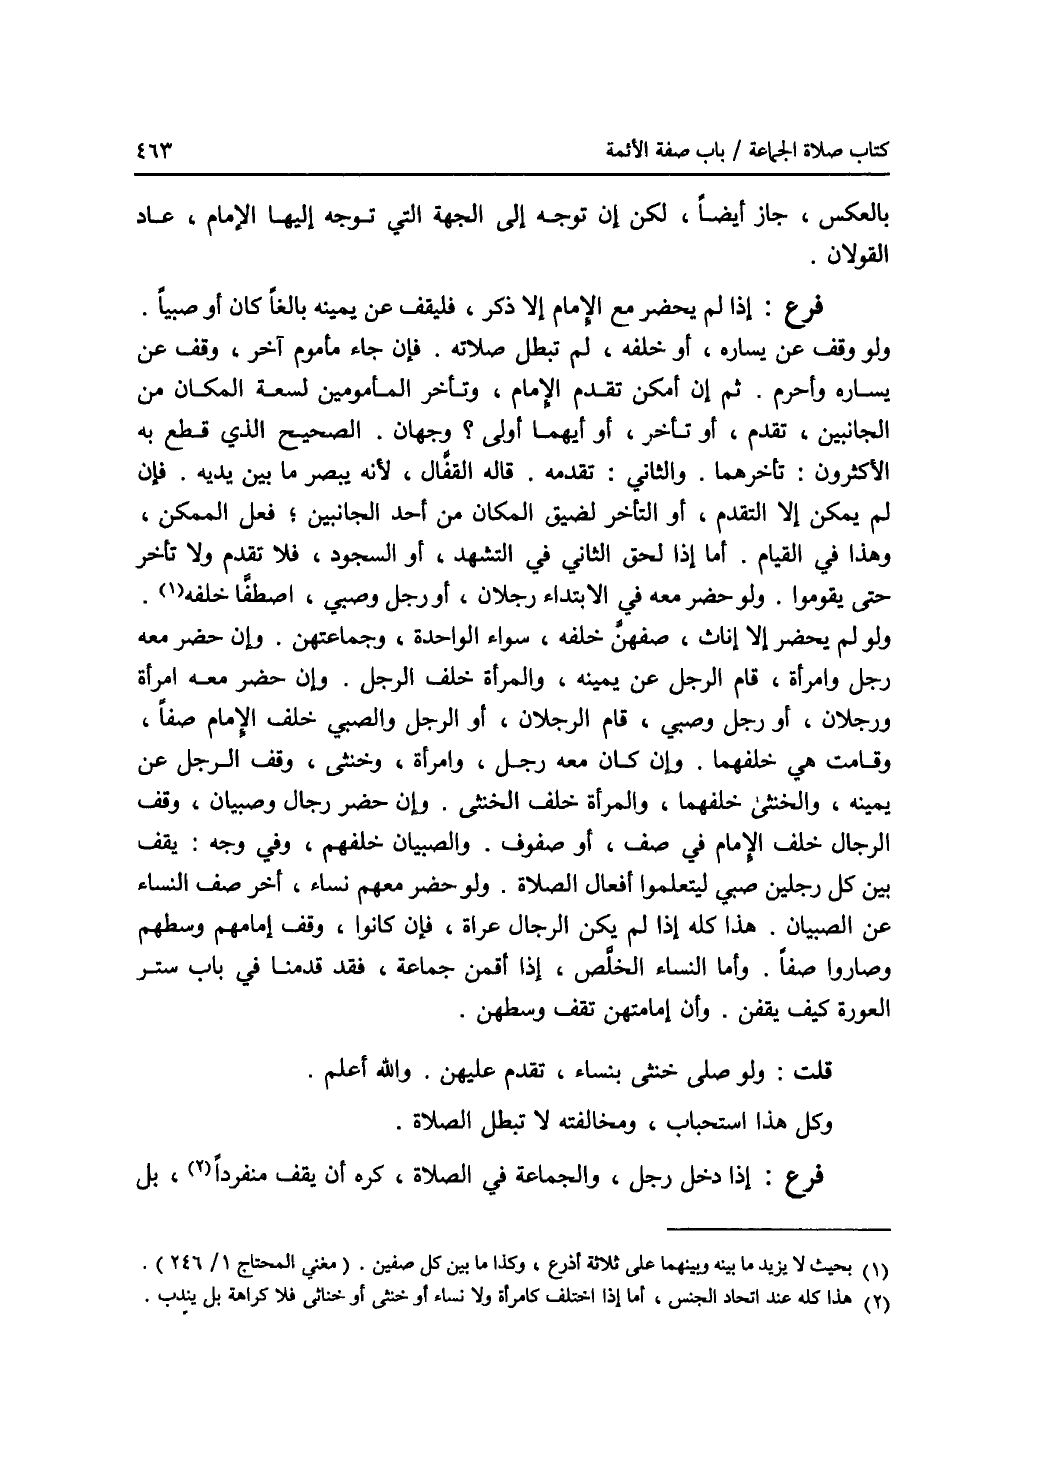 كتاب صلاة الجماعة / باب صفة الأئمة ٤٦٣
بالعكس ، جاز أيضاً ، لكن إن توجه إلى الجهة التي توجه إليها الإمام ، عاد
القولان .
فرع : إذا لم يحضر مع الإمام إلا ذكر ، فليقف عن يمينه بالغاً كان أو صبياً .
ولو وقف عن يساره ، أو خلفه ، لم تبطل صلاته . فإن جاء مأموم آخر ، وقف عن
يساره وأحرم . ثم إن أمكن تقدم الإمام ، وتأخر المأمومين لسعة المكان من
الجانبين ، تقدم ، أو تأخر ، أو أيهما أولى ؟ وجهان . الصحيح الذي قطع به
الأكثرون : تأخرهما . والثاني : تقدمه . قاله القفَّال ، لأنه يبصر ما بين يديه . فإن
لم يمكن إلا التقدم ، أو التأخر لضيق المكان من أحد الجانبين ؛ فعل الممكن ،
وهذا في القيام . أما إذا لحق الثاني في التشهد ، أو السجود ، فلا تقدم ولا تأخر
حتى يقوموا . ولو حضر معه في الابتداء رجلان ، أو رجل وصبي ، اصطفَّا خلفه(١) .
ولو لم يحضر إلا إناث ، صفهنَّ خلفه ، سواء الواحدة ، وجماعتهن . وإن حضر معه
رجل وامرأة ، قام الرجل عن يمينه ، والمرأة خلف الرجل . وإن حضر معه امرأة
ورجلان ، أو رجل وصبي ، قام الرجلان ، أو الرجل والصبي خلف الإمام صفاً ،
وقامت هي خلفهما . وإن كان معه رجل ، وامرأة ، وخنثى ، وقف الرجل عن
يمينه ، والخنثىٰ خلفهما ، والمرأة خلف الخنثى . وإن حضر رجال وصبيان ، وقف
الرجال خلف الإمام في صف ، أو صفوف . والصبيان خلفهم ، وفي وجه : يقف
بين كل رجلين صبي ليتعلموا أفعال الصلاة . ولو حضر معهم نساء ، أخر صف النساء
عن الصبيان . هذا كله إذا لم يكن الرجال عراة ، فإن كانوا ، وقف إمامهم وسطهم
وصاروا صفاً . وأما النساء الخلَّص ، إذا أقمن جماعة ، فقد قدمنا في باب ستر
العورة كيف يقفن . وأن إمامتهن تقف وسطهن .
قلت : ولو صلى خنثى بنساء ، تقدم عليهن . والله أعلم .
وكل هذا استحباب ، ومخالفته لا تبطل الصلاة .
فرع : إذا دخل رجل ، والجماعة في الصلاة ، كره أن يقف منفرداً(٢) ، بل
(١) بحيث لا يزيد ما بينه وبينهما على ثلاثة أذرع ، وكذا ما بين كل صفين . ( مغني المحتاج ١/ ٢٤٦ ) .
(٢) هذا كله عند اتحاد الجنس ، أما إذا اختلف كامرأة ولا نساء أو خنثى أو خناثى فلا كراهة بل يندب .